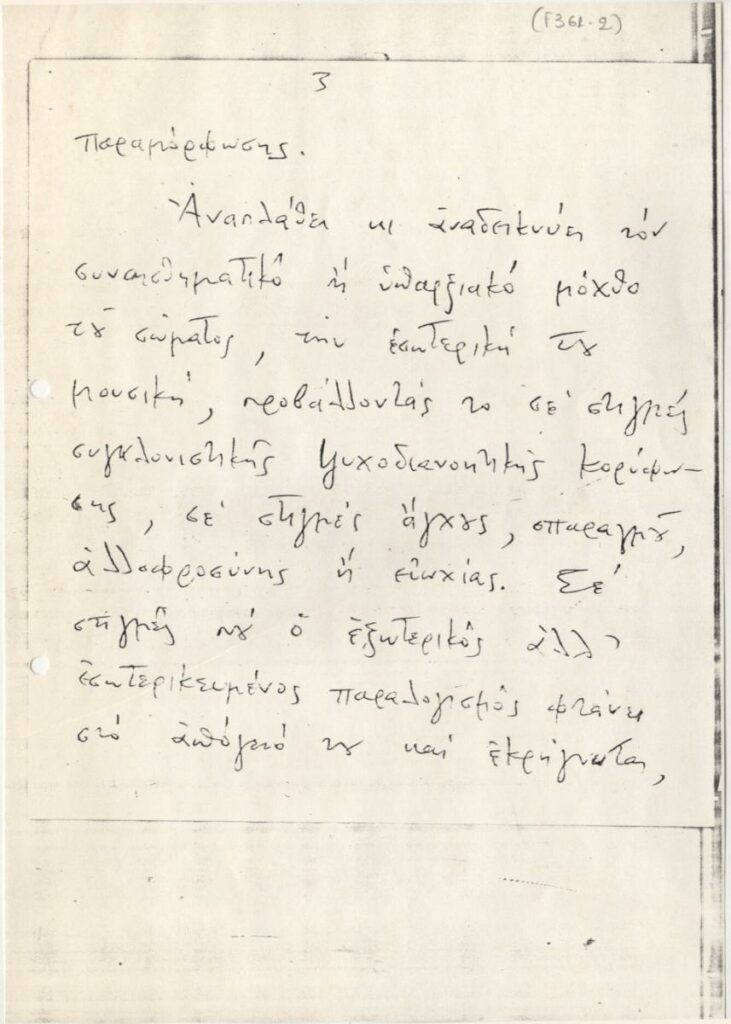 (F361-2)
3
παραμόρφωσης.
Ἀναπλάθει κι ἀναδεικνύει τόν
συναισθηματικό ἤ ὑπαρξιακό μόχθο
τοῦ σώματος, τήν ἐσωτερική του
μουσική, προβάλλοντάς το σέ στιγμές
συγκλονιστικῆς ψυχοδιανοητικῆς κορύφω-
σης, σέ στιγμές ἄγχους, σπαραγμοῦ,
ἀλλοφροσύνης ἤ εὐωχίας. Σέ
στιγμές πού ὁ ἐξωτερικός ἀλλ'
ἐσωτερικευμένος παραλογισμός φτάνει
στό ἀπόγειό του καί ἐκρήγνυται,